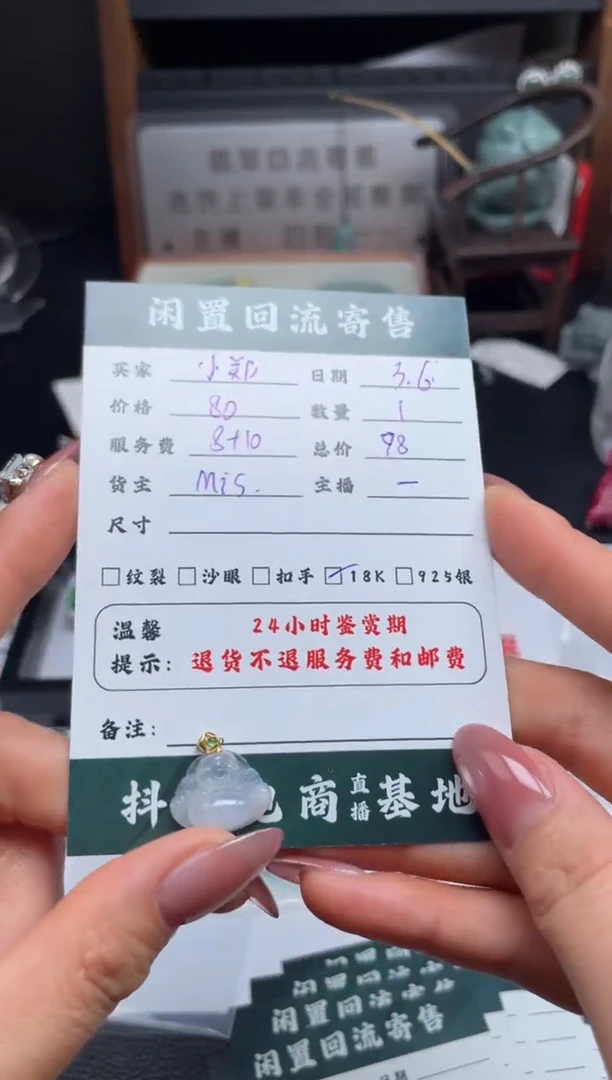 闲置回流寄售
买家 小郑 日期 3.6
价格 80 数量 1
服务费 8+10 总价 98
货主 Mis. 主播 一
尺寸
纹裂 沙眼 扣手 18K 925银
温馨 24小时鉴赏期
提示: 退货不退服务费和邮费
备注:
抖 商直播基地
闲置回流寄售
闲置回流寄售
日期